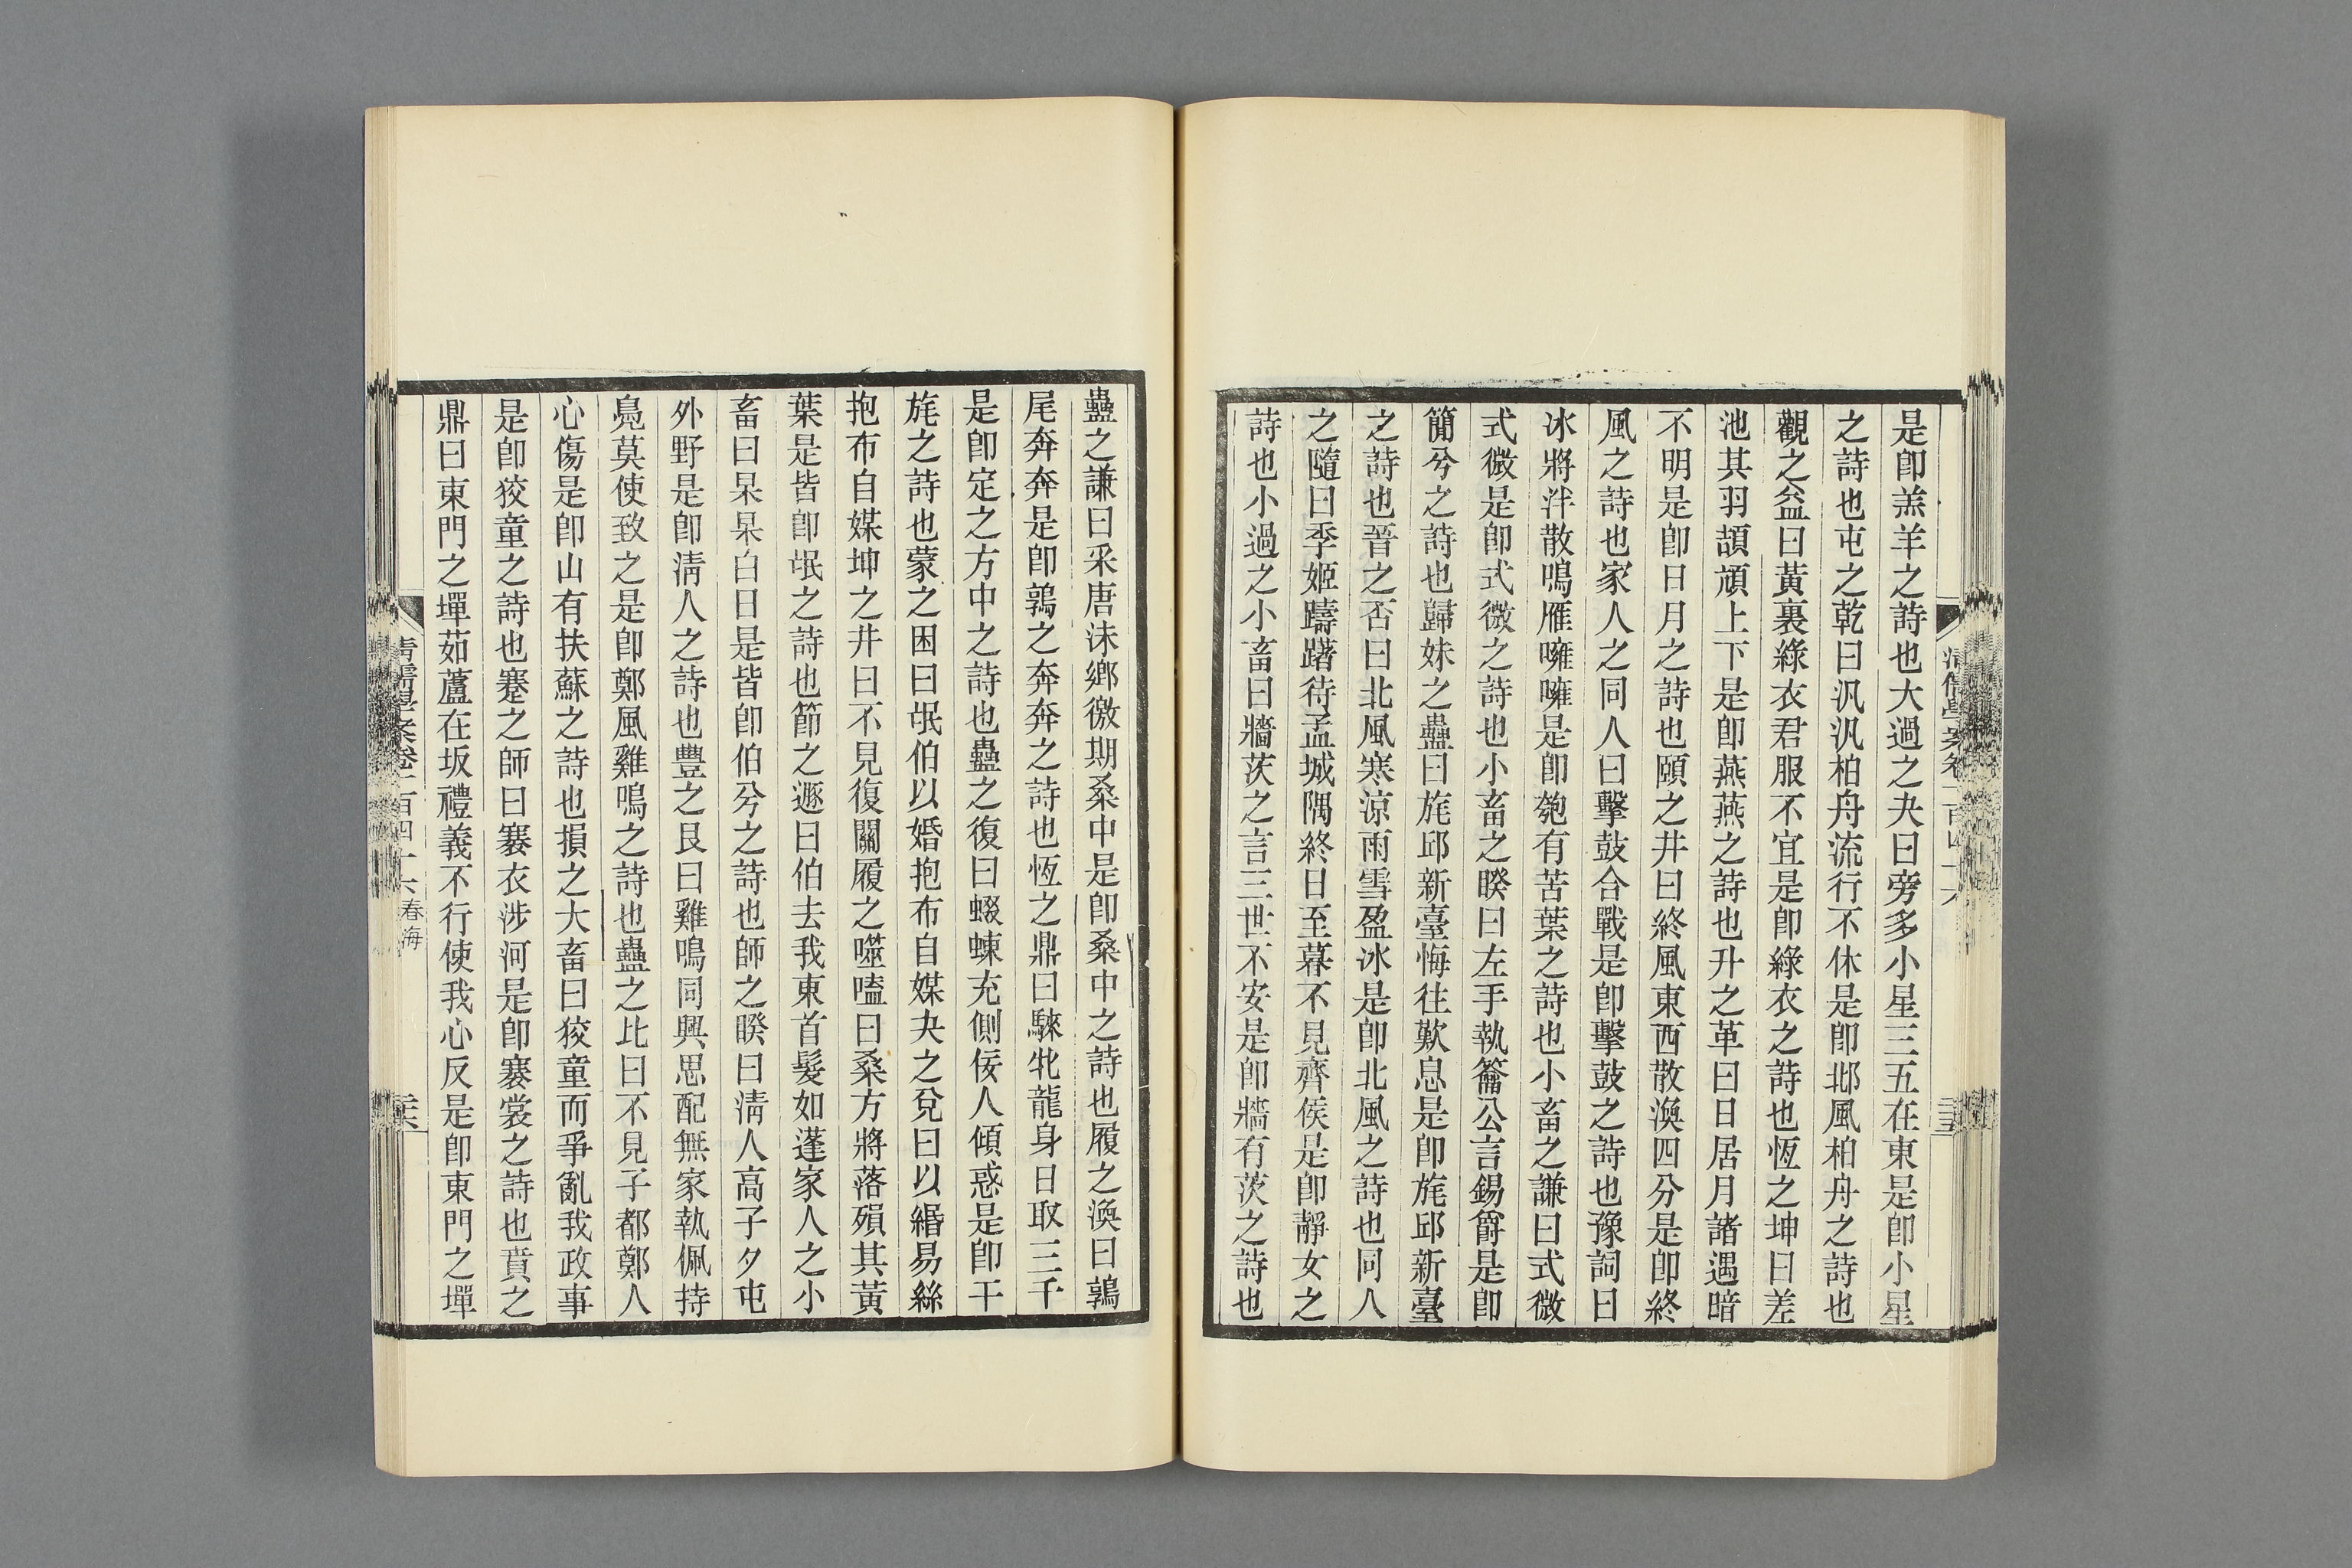 是卽羔羊之詩也大過之夬曰旁多小星三五在東是卽小星
之詩也屯之乾曰汎汎柏舟流行不休是卽邶風柏舟之詩也
觀之益曰黃裏綠衣君服不宜是卽綠衣之詩也恆之坤曰差
池其羽頡頏上下是卽燕燕之詩也升之革曰日居月諸遇暗
不明是卽日月之詩也頤之井曰終風東西散渙四分是卽終
風之詩也家人之同人曰擊鼓合戰是卽擊鼓之詩也豫詞曰
冰將泮散鳴雁噰噰是卽匏有苦葉之詩也小畜之謙曰式微
式微是卽式微之詩也小畜之睽曰左手執籥公言錫爵是卽
簡兮之詩也歸妹之蠱曰旄邱新臺悔往歎息是卽旄邱新臺
之詩也晉之否曰北風寒涼雨雪盈冰是卽北風之詩也同人
之隨曰季姬躊躇待孟城隅終日至暮不見齊侯是卽靜女之
詩也小過之小畜曰牆茨之言三世不安是卽牆有茨之詩也
蠱之謙曰采唐沬鄉徼期桑中是卽桑中之詩也履之渙曰鶉
尾奔奔是卽鶉之奔奔之詩也恆之鼎曰騋牝龍身日取三千
是卽定之方中之詩也蠱之復曰蝃蝀充側佞人傾惑是卽干
旄之詩也蒙之困曰氓伯以婚抱布自媒夬之兌曰以緡易絲
抱布自媒坤之井曰不見復關履之噬嗑曰桑方將落殞其黃
葉是皆卽氓之詩也節之遯曰伯去我東首髮如蓬家人之小
畜曰杲杲白日是皆卽伯兮之詩也師之睽曰淸人高子夕屯
外野是卽淸人之詩也豐之艮曰雞鳴同興思配無家執佩持
鳧莫使致之是卽鄭風雞鳴之詩也蠱之比曰不見子都鄭人
心傷是卽山有扶蘇之詩也損之大畜曰狡童而爭亂我政事
是卽狡童之詩也蹇之師曰褰衣涉河是卽褰裳之詩也賁之
鼎曰東門之墠茹藘在坂禮義不行使我心反是卽東門之墠
清儒學案卷一百四十六春海